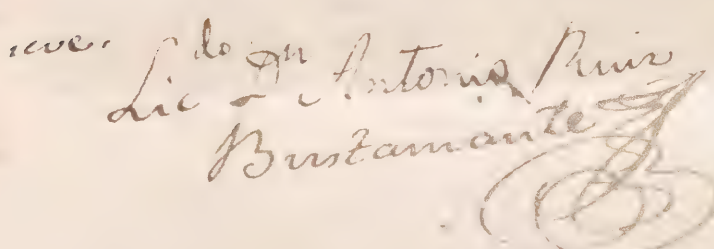 Lic.do Dn Antonio Ruiz
Bustamante